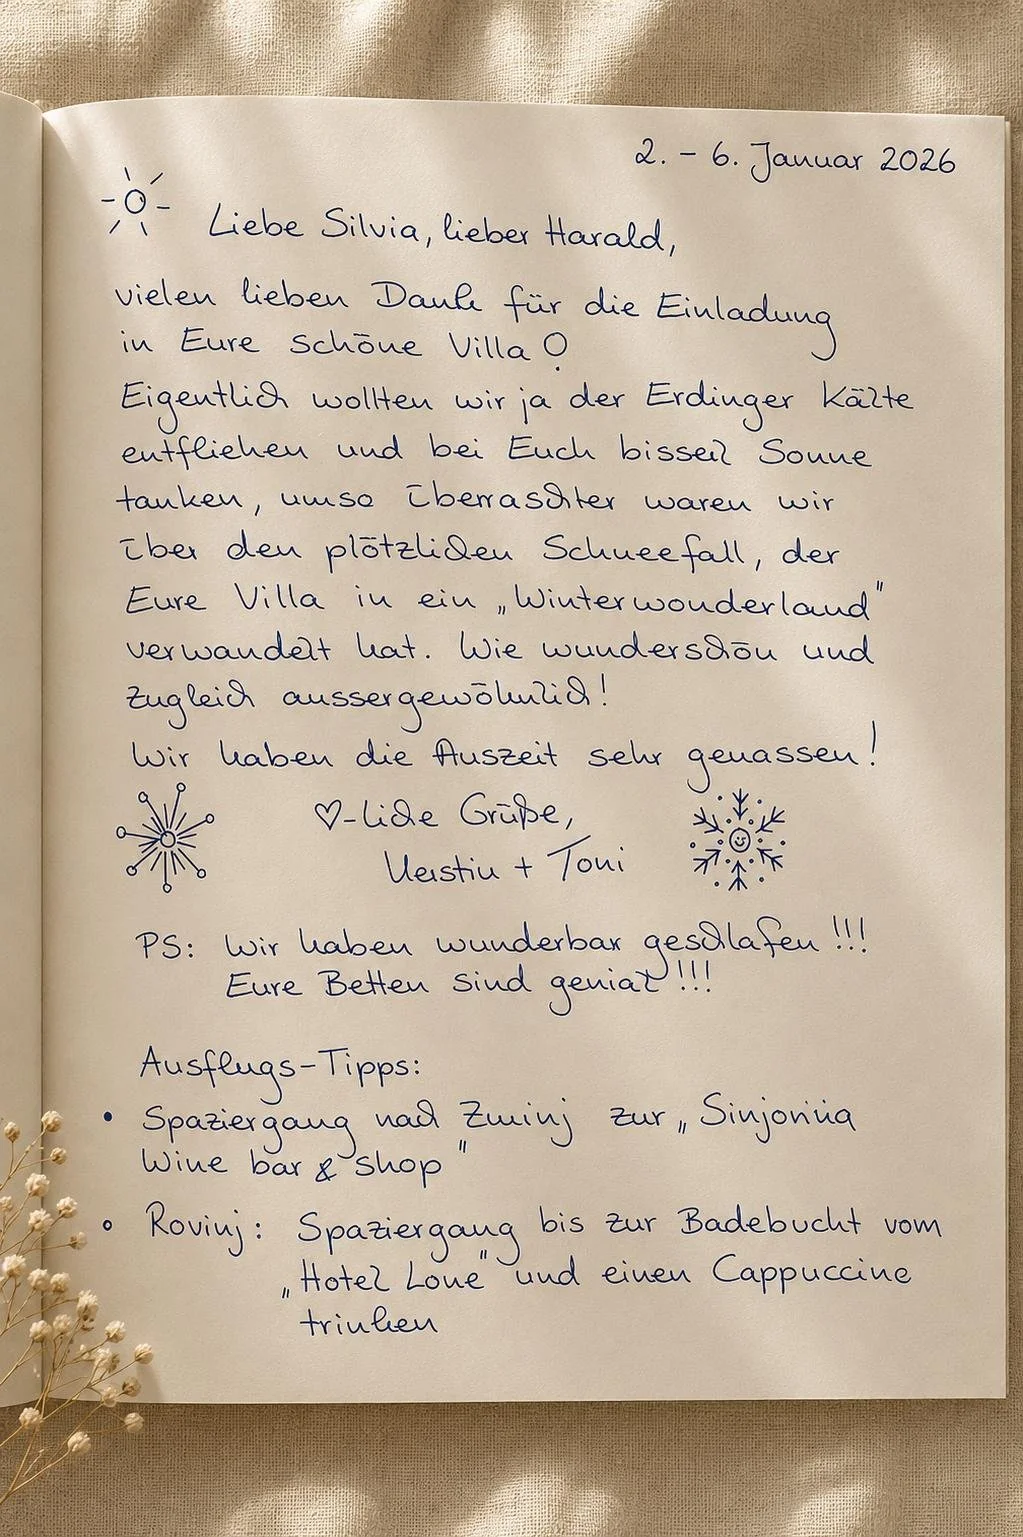 2. – 6. Januar 2026
Liebe Silvia, lieber Harald,
vielen lieben Dank für die Einladung
in Eure schöne Villa!
Eigentlich wollten wir ja der Erdinger Kälte
entfliehen und bei Euch bisserl Sonne
tanken, umso überraschter waren wir
über den plötzlichen Schneefall, der
Eure Villa in ein „Winterwonderland"
verwandelt hat. Wie wunderschön und
zugleich aussergewöhnlich!
Wir haben die Auszeit sehr genossen!
♡-liche Grüße,
Kerstin + Toni
PS: Wir haben wunderbar geschlafen!!!
Eure Betten sind genial!!!
Ausflugs-Tipps:
• Spaziergang nach Žminj zur „Sinjorina
Wine bar & shop"
• Rovinj: Spaziergang bis zur Badebucht vom
„Hotel Lone" und einen Cappuccino
trinken